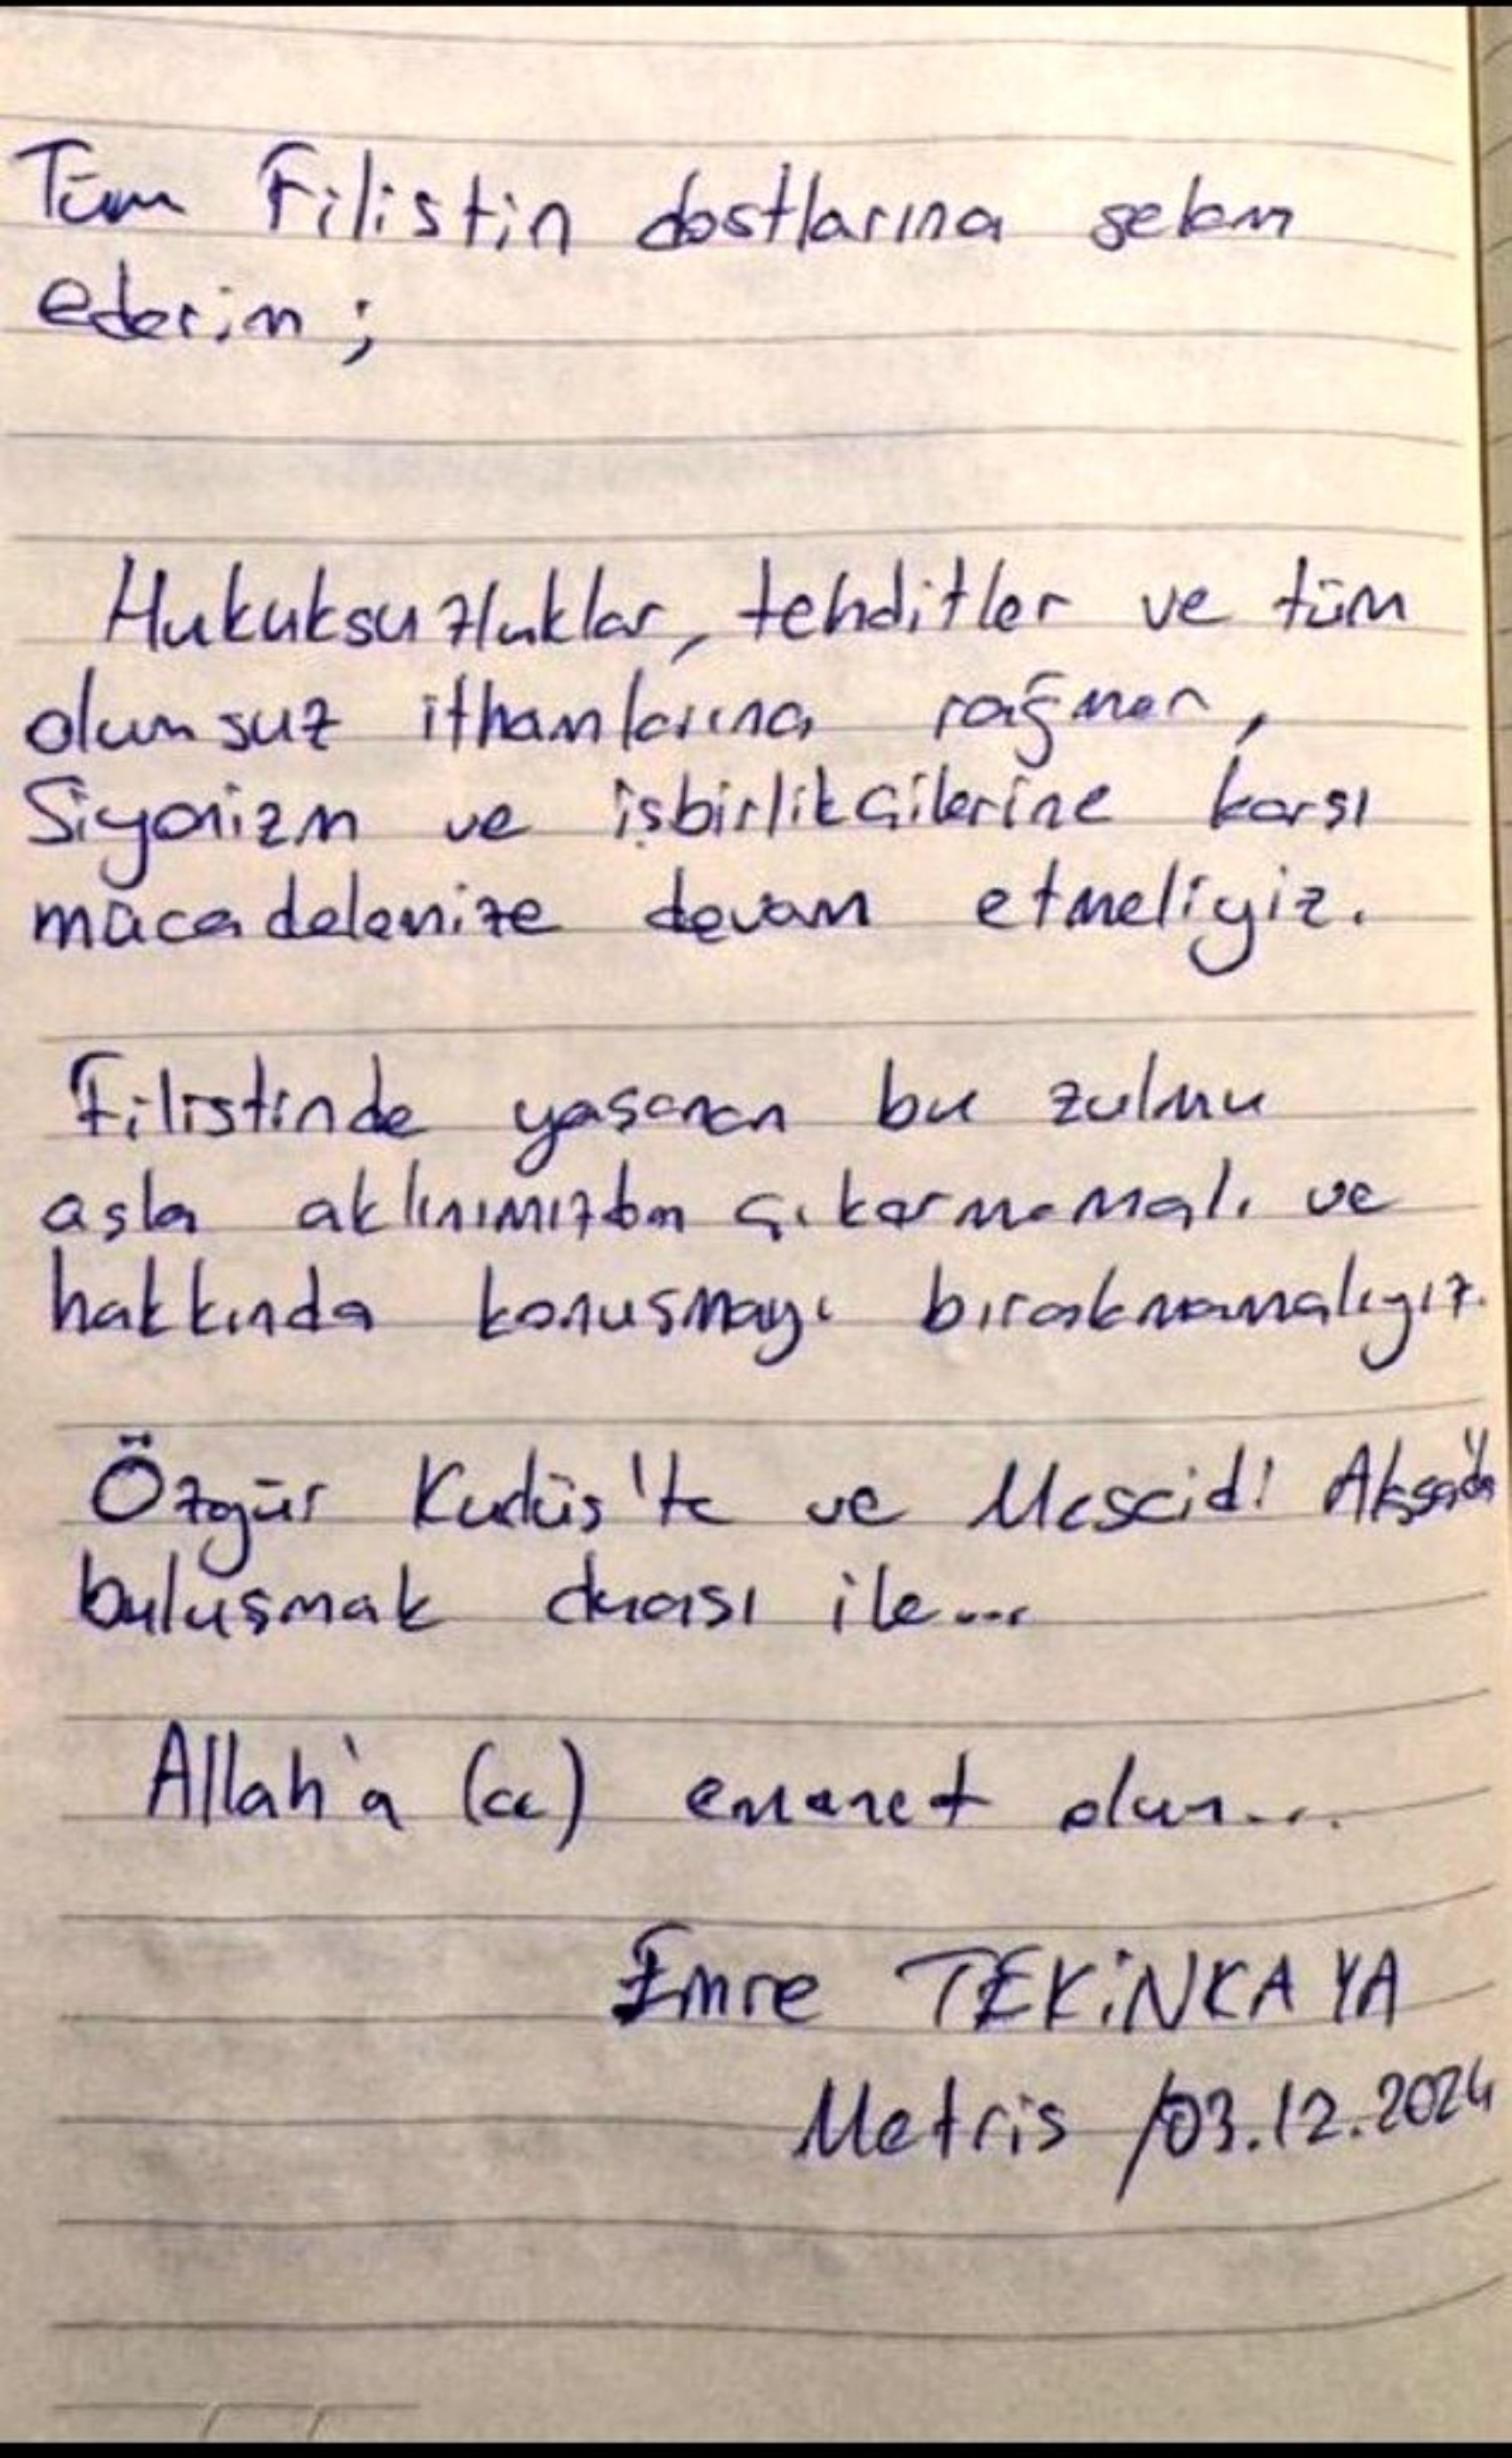 Tüm Filistin dostlarına selam
ederim ;
Hukuksuzluklar, tehditler ve tüm
olumsuz ithamlarına rağmen,
Siyonizm ve işbirlikçilerine karşı
mücadelemize devam etmeliyiz.
Filistinde yaşanan bu zulmu
asla aklınımızdan çıkarmamalı ve
hakkında konuşmayı bırakmamalıyız.
Özgür Kudüs'te ve Mescidi Aksa'da
buluşmak duası ile...
Allah'a (cc) emanet olun...
Emre TEKİNKAYA
Metris /03.12.2024